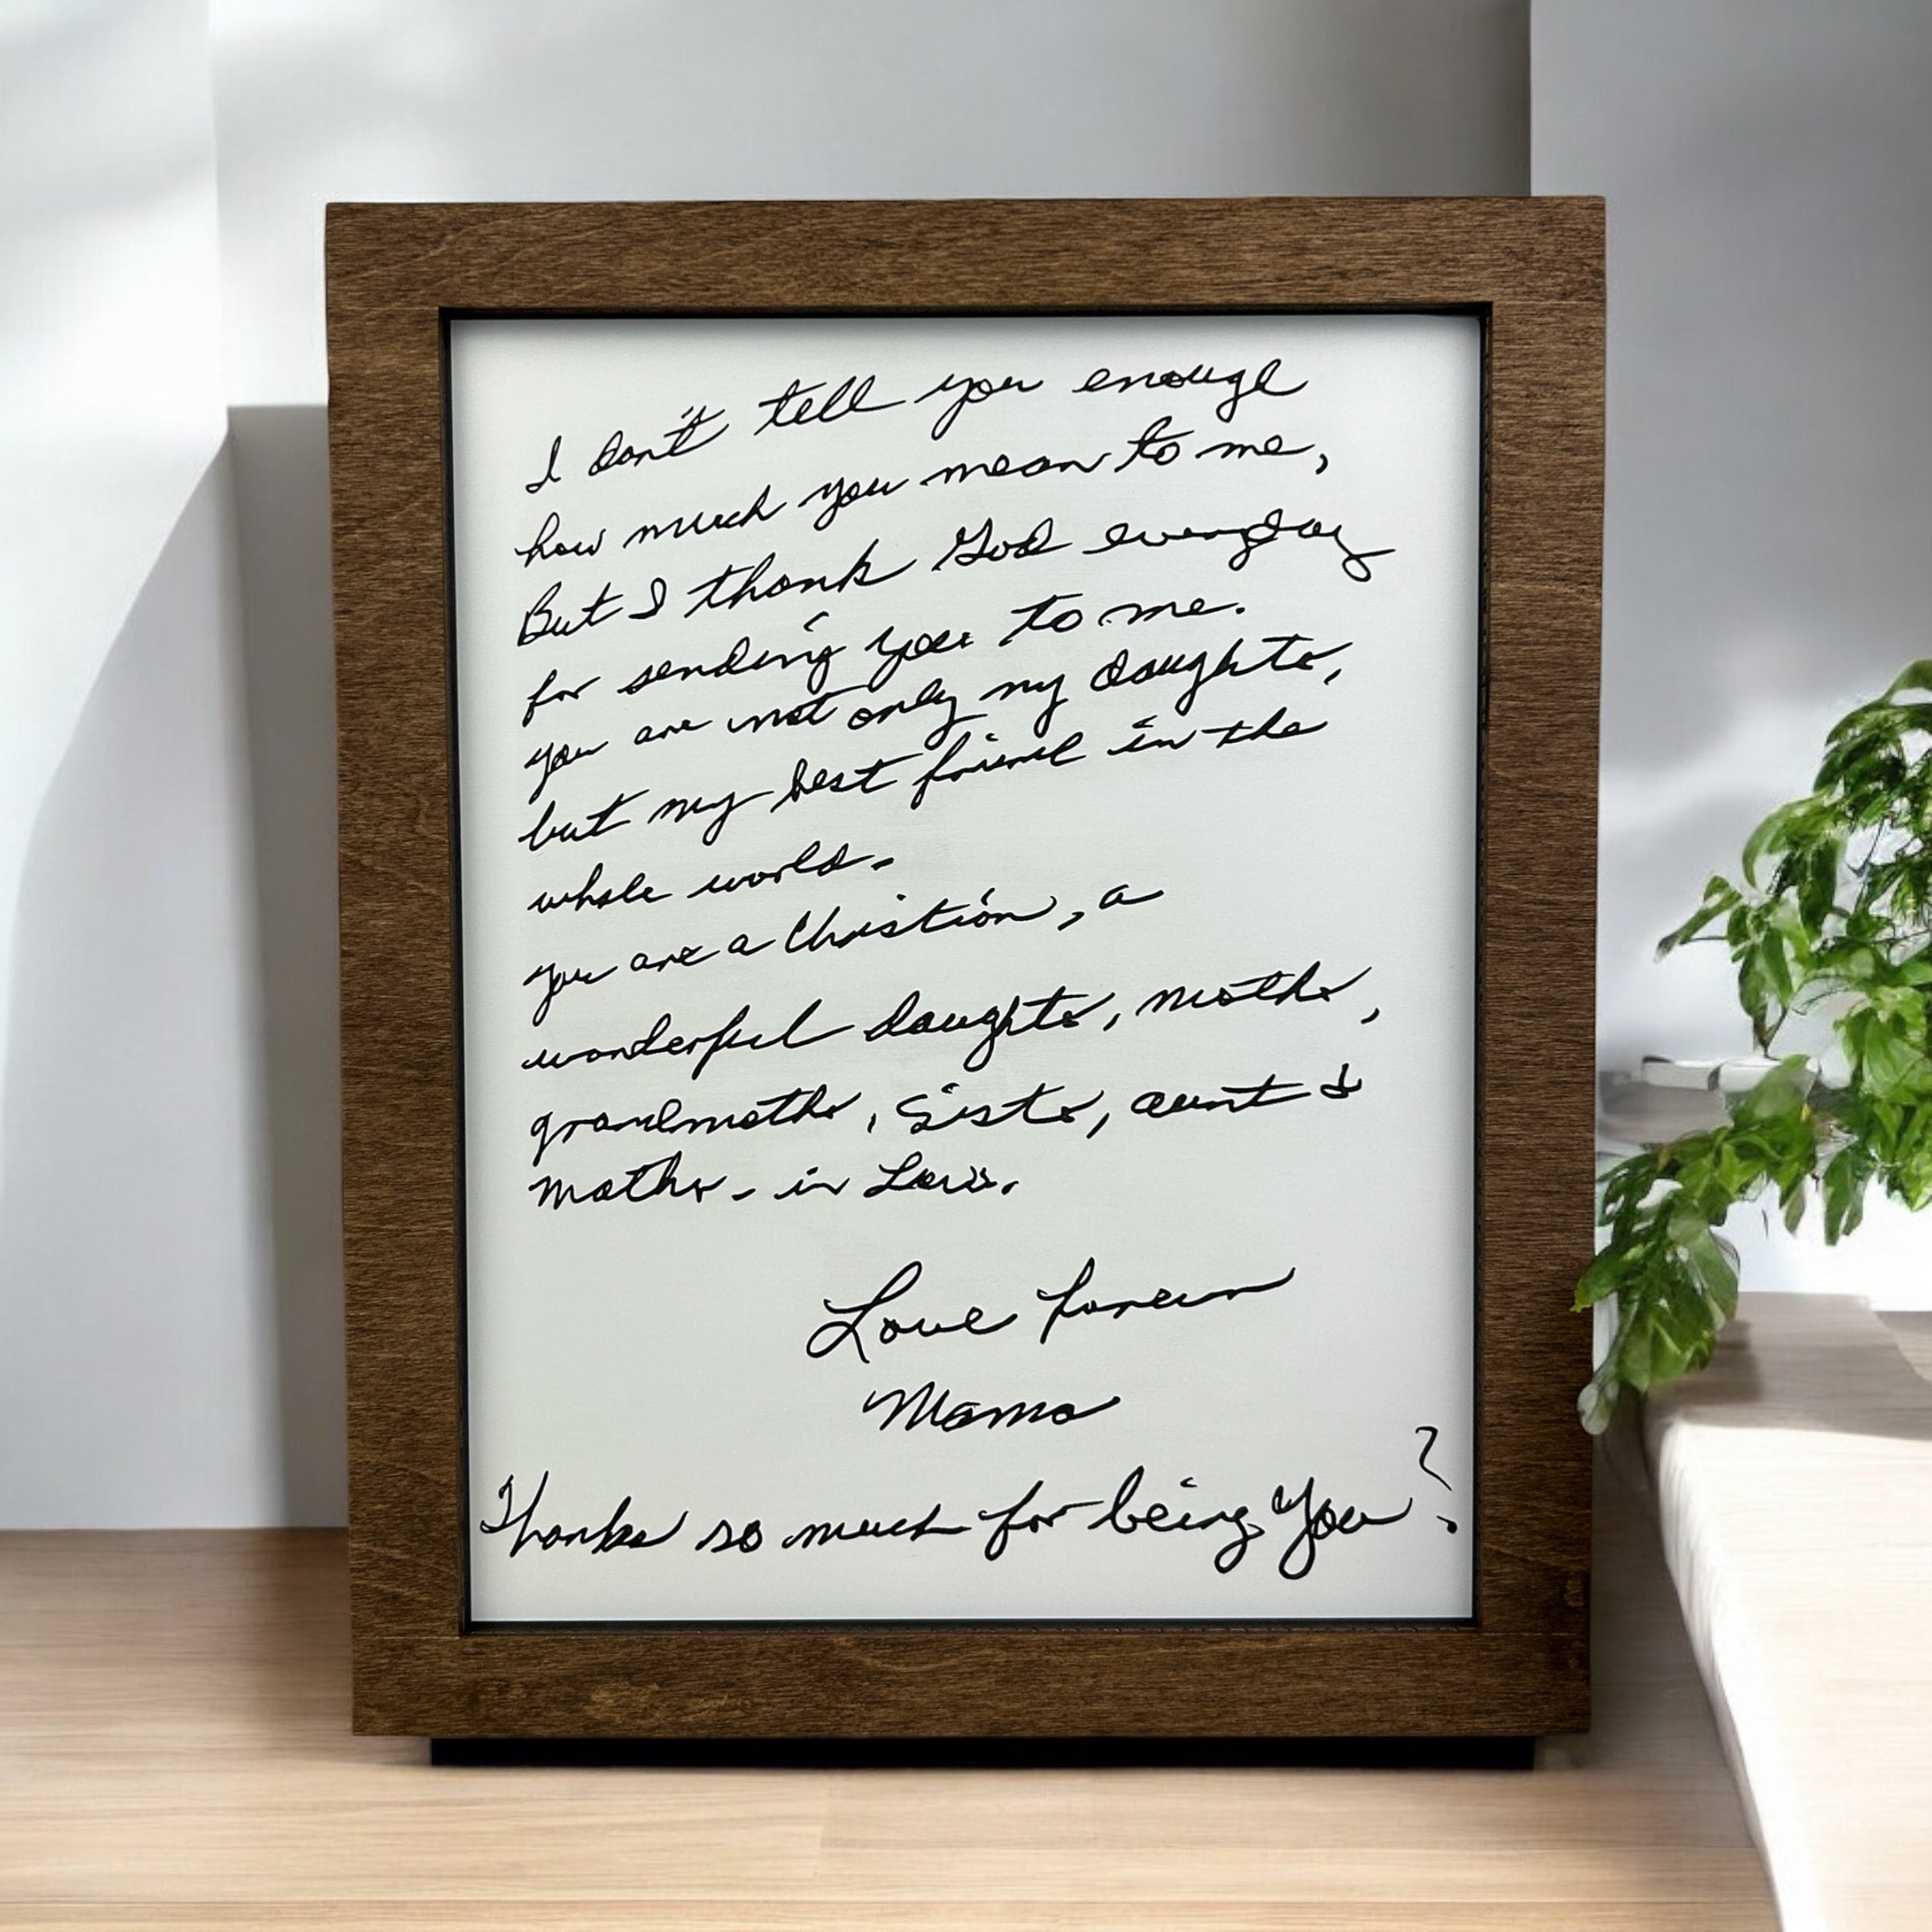 I don't tell you enough
how much you mean to me,
But I thank God everyday
for sending you to me.
you are not only my daughter,
but my best friend in the
whole world.
you are a Christian, a
wonderful daughter, mother,
grandmother, Sister, aunt &
mother-in Law.
Love forever
Mama
Thanks so much for being You?